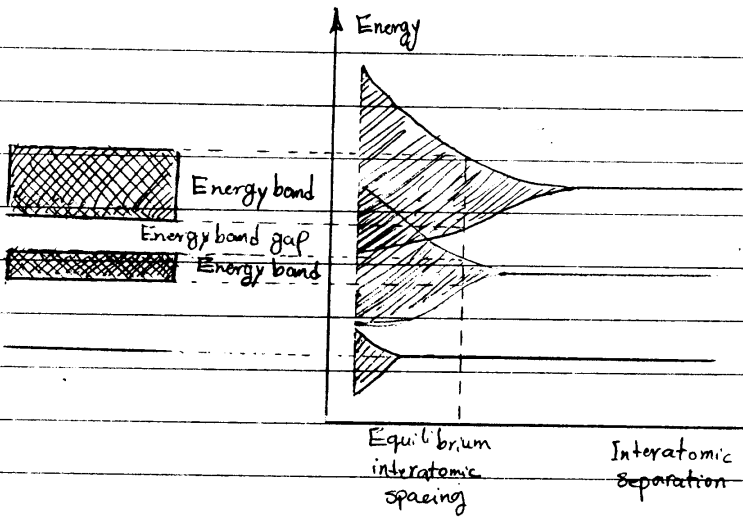 Energy
Energy band
Energy band gap
Energy band
Equilibrium
interatomic
spacing
Interatomic
separation